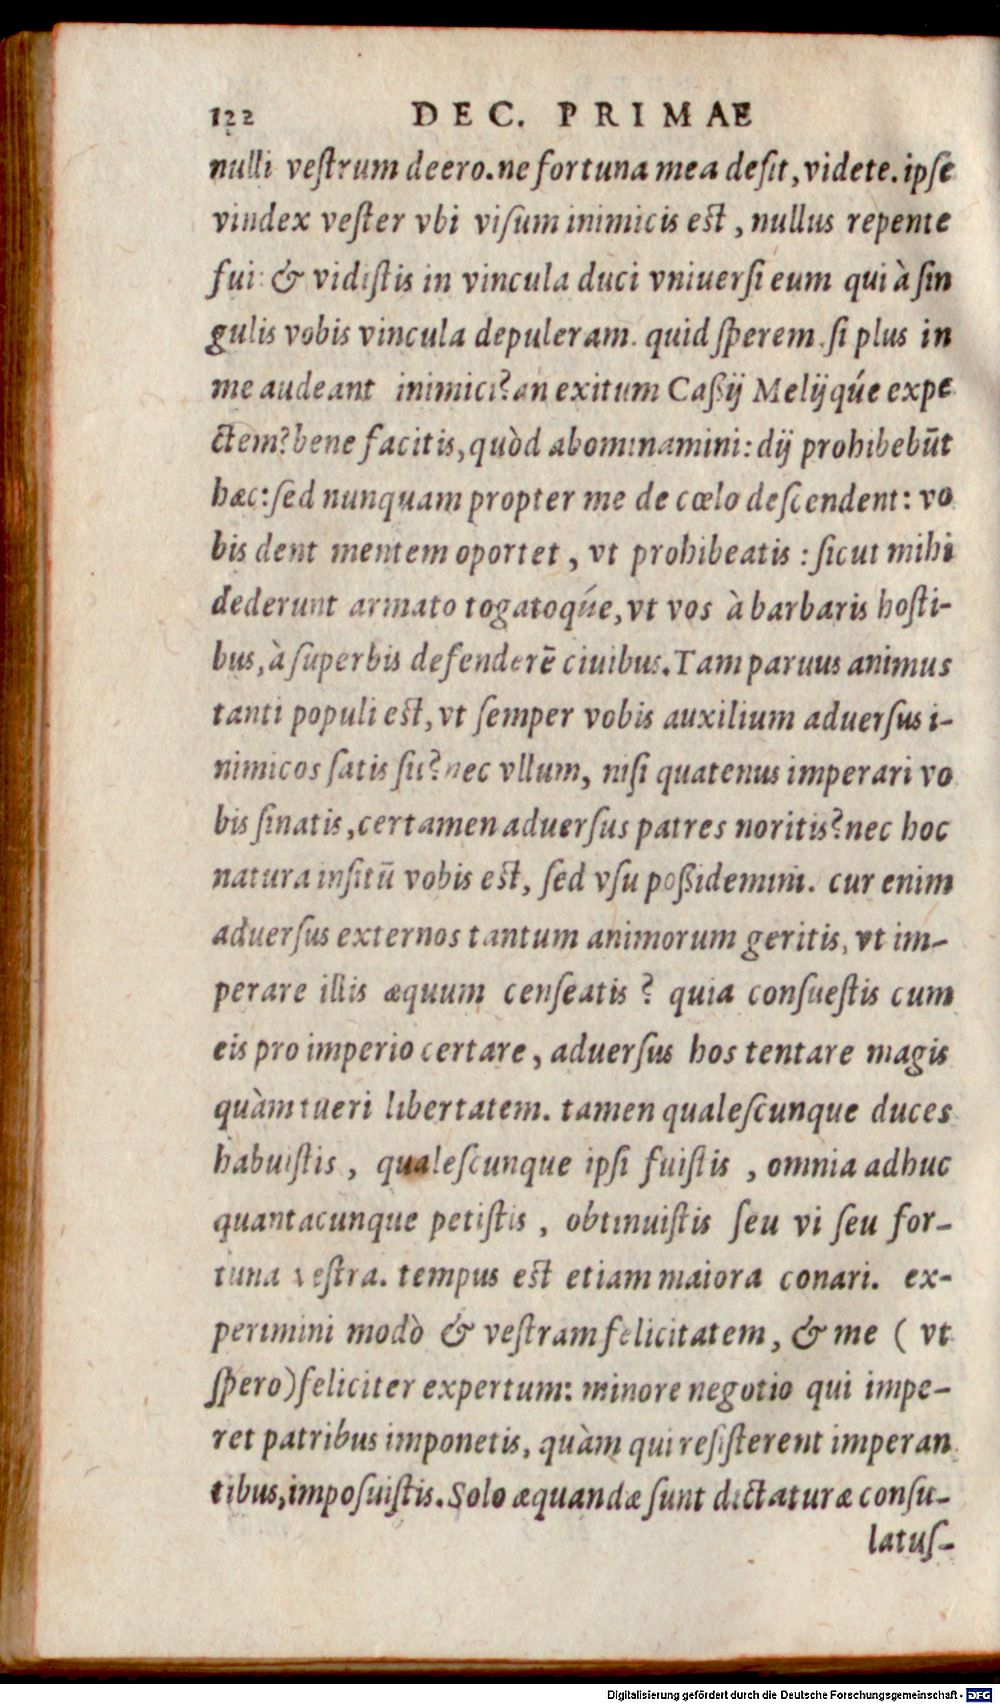 122 DEC. PRIMAE
nulli veſtrum deero. ne fortuna mea deſit, videte. ipſe
vindex veſter vbi viſum inimicis eſt, nullus repente
fui: & vidiſtis in vincula duci vniuerſi eum qui à ſin
gulis vobis vincula depuleram. quid ſperem, ſi plus in
me audeant inimici? an exitum Caßij Melijqúe expe
ctem? bene facitis, quòd abominamini: dij prohibebūt
hæc: ſed nunquam propter me de cœlo deſcendent: vo
bis dent mentem oportet, vt prohibeatis: ſicut mihi
dederunt armato togatoqúe, vt vos à barbaris hoſti-
bus, à ſuperbis defenderē ciuibus. Tam paruus animus
tanti populi eſt, vt ſemper vobis auxilium aduerſus i-
nimicos ſatis ſit? nec vllum, niſi quatenus imperari vo
bis ſinatis, certamen aduerſus patres noritis? nec hoc
natura inſitū vobis eſt, ſed vſu poßidemini. cur enim
aduerſus externos tantum animorum geritis, vt im-
perare illis æquum cenſeatis? quia conſueſtis cum
eis pro imperio certare, aduerſus hos tentare magis
quàm tueri libertatem. tamen qualeſcunque duces
habuiſtis, qualeſcunque ipſi fuiſtis, omnia adhuc
quantacunque petiſtis, obtinuiſtis ſeu vi ſeu for-
tuna veſtra. tempus eſt etiam maiora conari. ex-
perimini modò & veſtram felicitatem, & me ( vt
ſpero) feliciter expertum: minore negotio qui impe-
ret patribus imponetis, quàm qui reſiſterent imperan
tibus, impoſuiſtis. Solo æquandæ ſunt dictaturæ conſu-
latuſ-
Digitalisierung gefördert durch die Deutsche Forschungsgemeinschaft - DFG